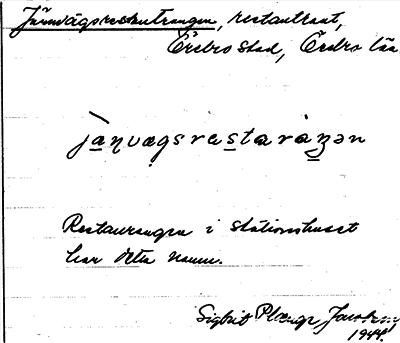 Järnvägsrestaurangen, restaurant,
Örebro stad, Örebro län
jàṇvægsrestaráŋən
Restaurangen i stationshuset
har detta namn.
Sigbrit Plænge Jacobson
1944.